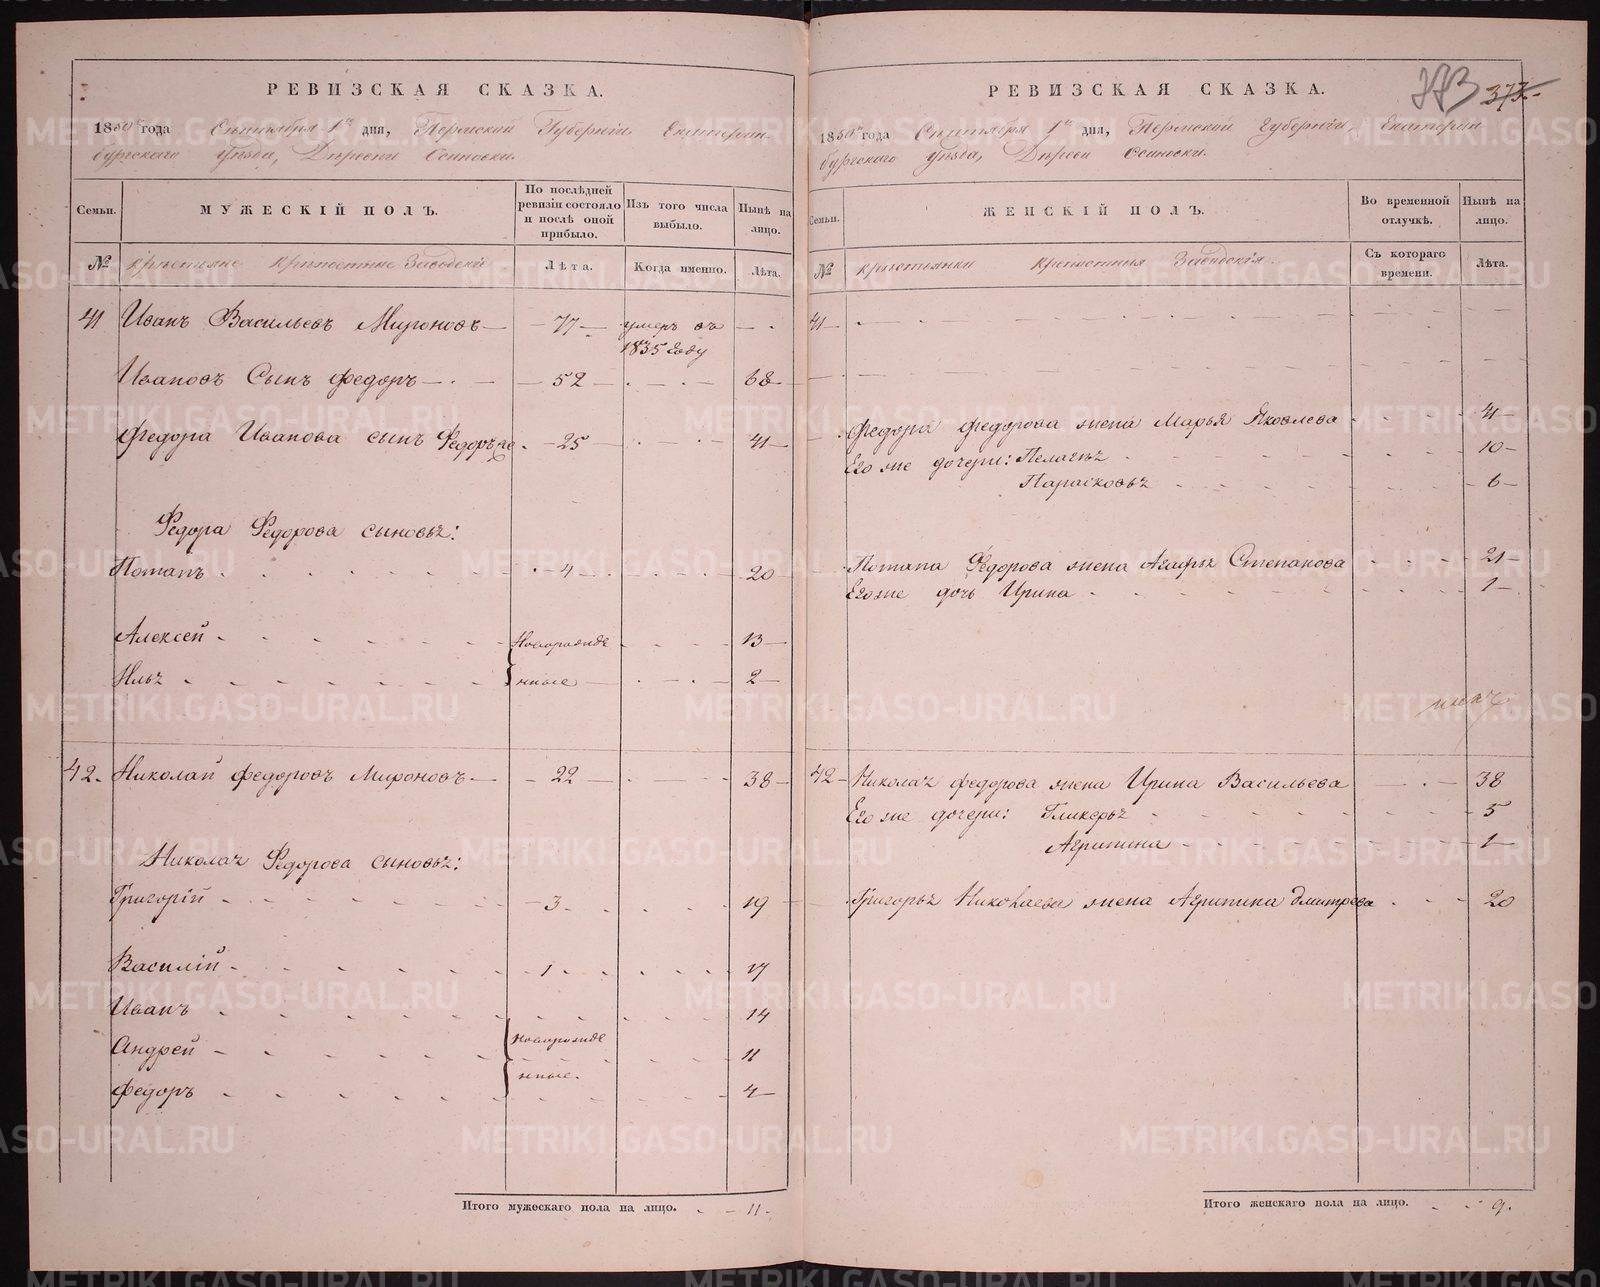 РЕВИЗСКАЯ СКАЗКА.
1850 года Сентября 1го дня, Пермской Губерніи Екатерин-
бургскаго Уѣзда, Деревни Осиновки.
Семьи.
МУЖЕСКІЙ ПОЛЪ.
По послѣдней ревизіи состояло и послѣ оной прибыло.
Изъ того числа выбыло.
Нынѣ на лицо.
№
Крестьяне Крѣпостные Заводскіе
Лѣта.
Когда именно.
Лѣта.
41 Иванъ Васильевъ Мироновъ — 77 — умеръ въ
1835 Году
Ивановъ Сынъ Федоръ — 52 — 68
Федора Иванова сынъ Федоръ же 25 41
Федора Федорова сыновья:
Потапъ 4 20
Алексей Новорожде 13
Илья нные 2
42 Николай Федоровъ Мироновъ — 22 38
Николая Федорова сыновья:
Григорій 3 19
Василій 1 17
Иванъ 14
Андрей новорожде 11
нные.
Федоръ 4
Итого мужескаго пола на лицо. 11
РЕВИЗСКАЯ СКАЗКА.
373
1850 года Сентября 1го дня, Пермской Губерніи, Екатерин
бургскаго Уѣзда, Деревни Осиновки.
Семьи.
ЖЕНСКІЙ ПОЛЪ.
Во временной отлучкѣ.
Нынѣ на лицо.
№
Крестьянки Крепостныя Заводскія
Съ котораго времени.
Лѣта.
41
Федора Федорова жена Марья Яковлева 41
Его же дочери: Пелагея 10
Парасковья 6
Потапа Федорова жена Агафья Степанова 21
Его же дочь Ирина 1
42 Николая Федорова жена Ирина Васильева 38
Его же дочери: Гликерья 5
Агрипина 1
Григорья Николаева жена Агрипина Дмитрева 20
Итого женскаго пола на лицо. 9.
METRIKI.GASO-URAL.RU